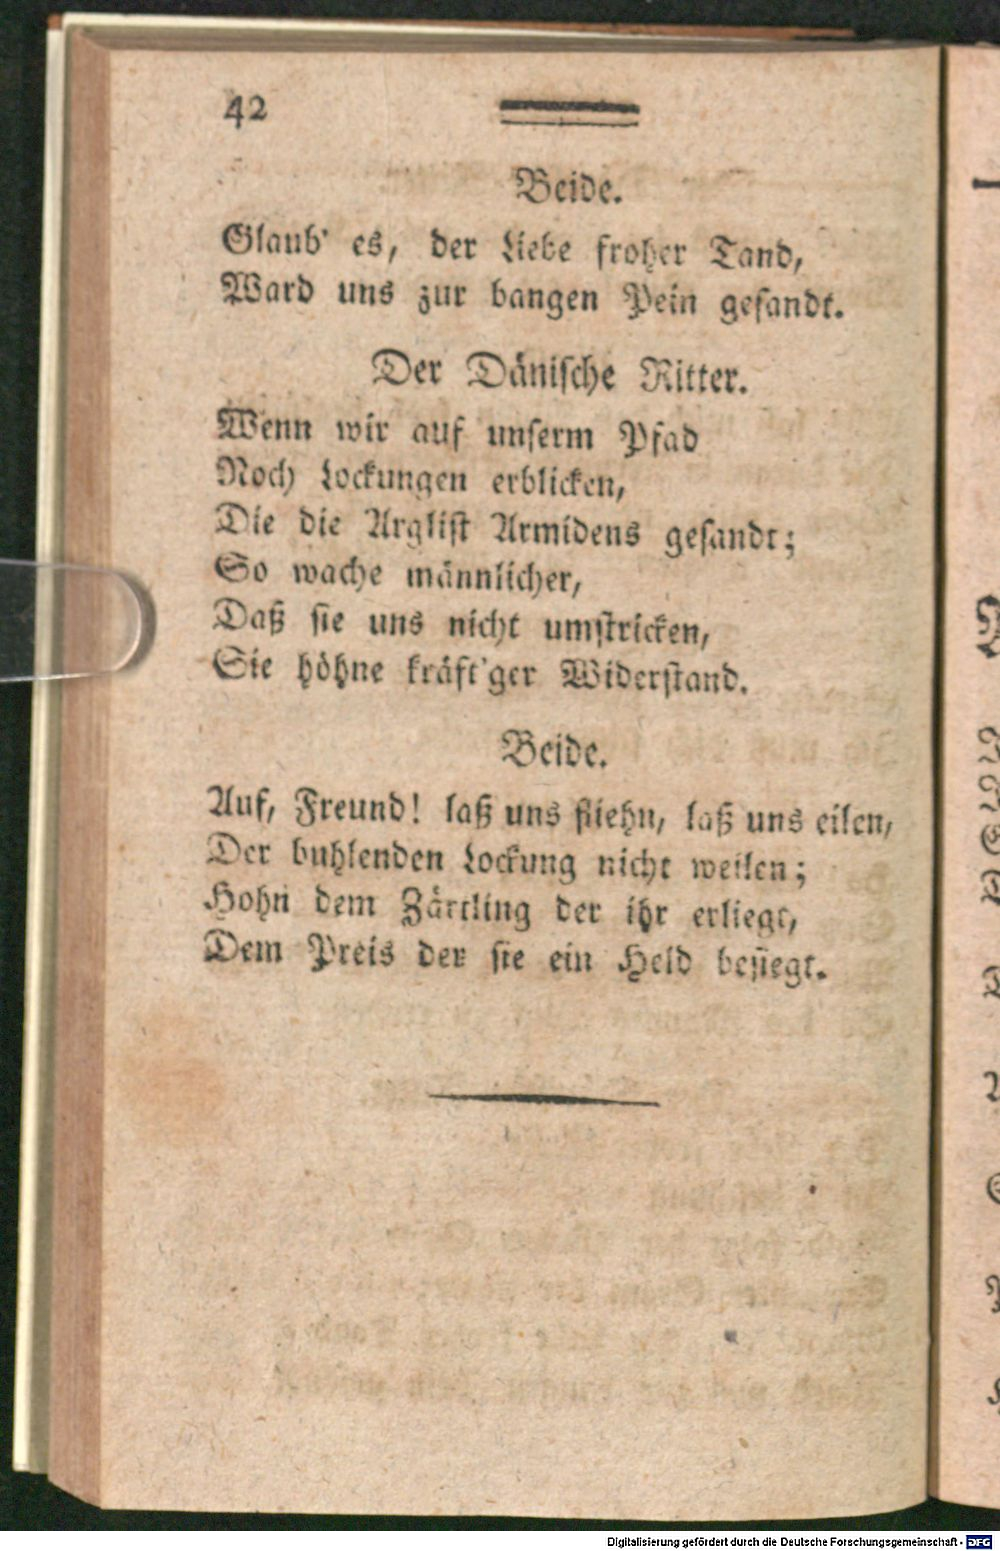 42
Beide.
Glaub' es, der Liebe froher Tand,
Ward uns zur bangen Pein gesandt.
Der Dänische Ritter.
Wenn wir auf unserm Pfad
Noch Lockungen erblicken,
Die die Arglist Armidens gesandt;
So wache männlicher,
Daß sie uns nicht umstricken,
Sie höhne kräft'ger Widerstand.
Beide.
Auf, Freund! laß uns fliehn, laß uns eilen,
Der buhlenden Lockung nicht weilen;
Hohn dem Zärtling der ihr erliegt,
Dem Preis der sie ein Held besiegt.
Digitalisierung gefördert durch die Deutsche Forschungsgemeinschaft - DFG